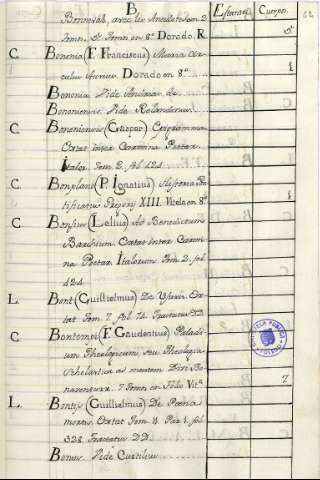 B
Estante. Cuerpo.
Bonneval, avec les Anecdotes tom 2
tomn. 5. tomn en 8º Dorado. R. 5
C. Bononia (F. Franciscus) Maria
culus Aureus. Dorado en 8º 1
Bononia Vide
Bononiensis Vide Rolandinus.
C. Bononiensis (Gaspar) Epigramma
Extat inter Carmina Poetar.
Italor. Tom. 2. fol. 424.
C. Bonplani (P. Ignatius) Historia Pon
tificatus Gregorij XIII. Vitela en 8º 1
C. Bonsius (Lellius) Ad Benedictum
Barchium. Extat inter Carmi
na Poetar. Italorum Tom 2. fol
424.
L. Bont (Guillielmus) De Usuris. Ex
tat Tom. 7. fol. 74. Tractatus DD.
C. Bontempi (F. Gaudentius) Palladi
um Theologicum, seu Theologia
Scholastica ad mentem Divi Bo
naventuræ. 7. Tomn en Folio Vitª 7
L. Bontij (Guillielmus) De Pœna
mortis. Extat Tom 11. Par. 1. fol
328. Tractatus DD.
Bonus. Vide Curtilius